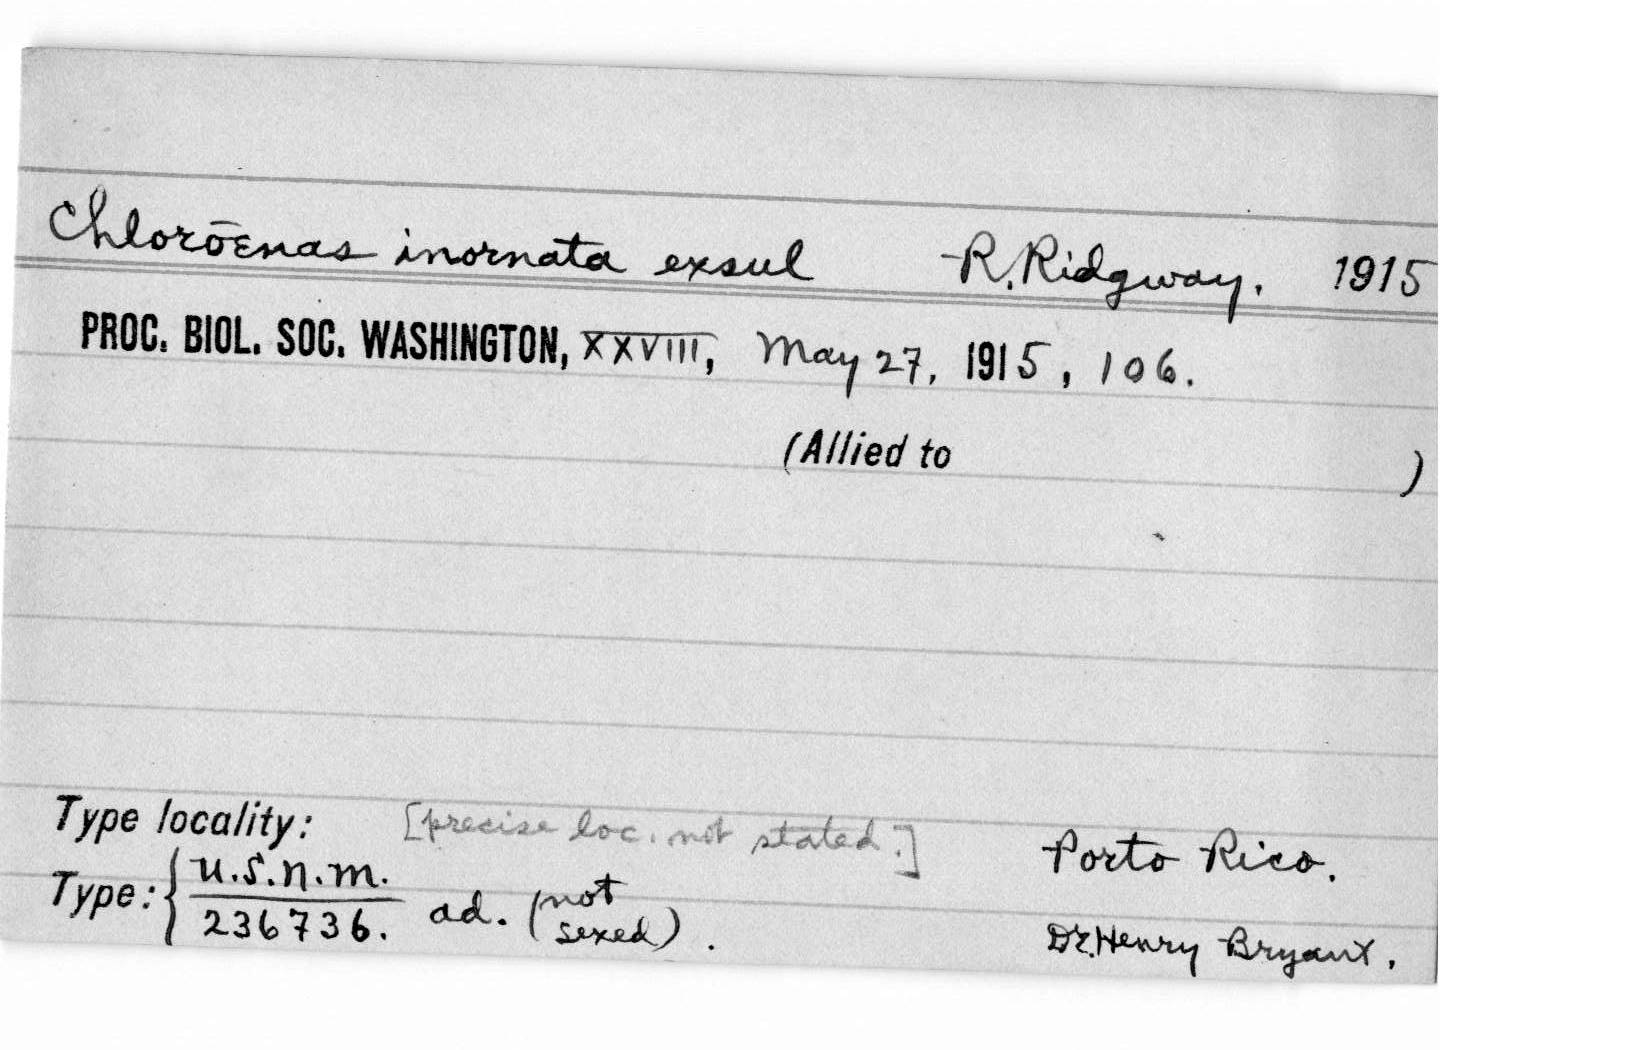 Chloroēnas inornata exsul R. Ridgway. 1915
PROC. BIOL. SOC. WASHINGTON, XXVIII, May 27, 1915, 106.
(Allied to )
Type locality: [precise loc. not stated.] Porto Rico.
Type: { U.S.N.M. 236736. ad. (not sexed). Dr. Henry Bryant.